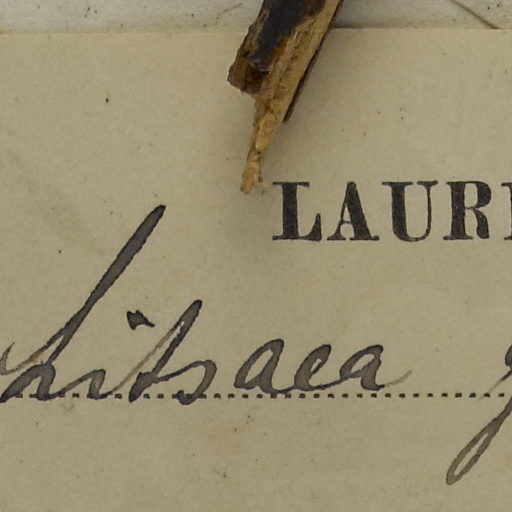 LAUR
Litsaea